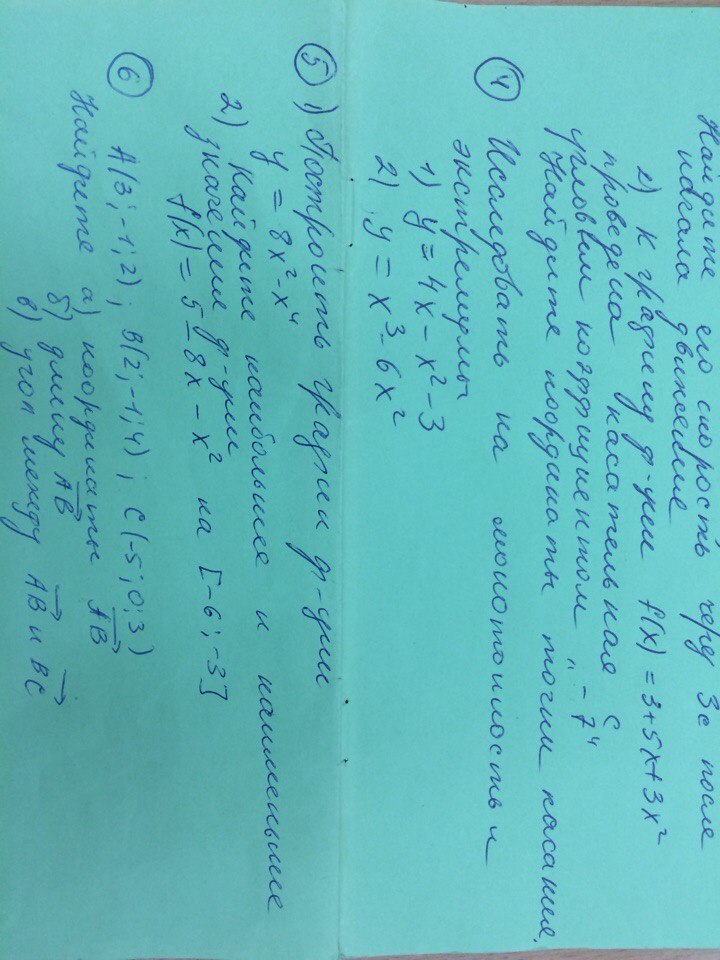 Найдите его скорость через 3с после
начала движения
2) К графику ф-ции f(x) = 3+5x+3x²
проведена касательная с
угловым коэффициентом „-7“
Найдите координаты точки касания.
④ Исследовать на монотонность и
экстремумы
1) y = 4x - x² - 3
2) y = x³ - 6x²
⑤ 1) Построить график ф-ции
y = 8x² - x⁴
2) Найдите наибольшее и наименьшее
значения ф-ции
f(x) = 5 - 8x - x² на [-6; -3]
⑥ A(3; -1; 2); B(2; -1; 4); C(-5; 0; 3)
Найдите а) координаты AB
б) длину AB
в) угол между AB и BC